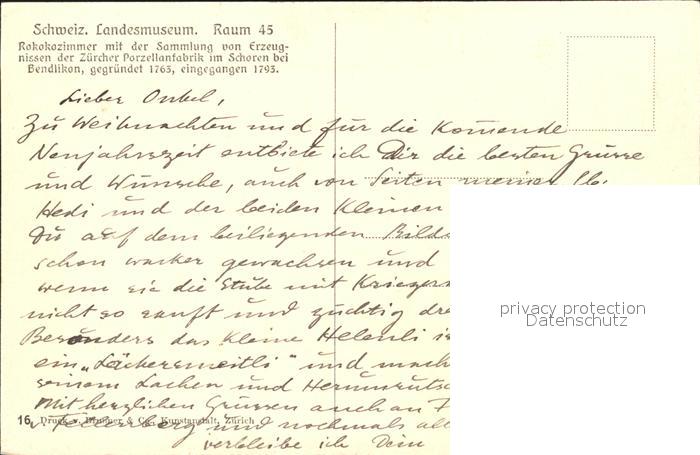 Schweiz. Landesmuseum. Raum 45
Rokokozimmer mit der Sammlung von Erzeug-
nissen der Zürcher Porzellanfabrik im Schoren bei
Bendlikon, gegründet 1763, eingegangen 1793.
Lieber Onkel,
Zu Weihnachten und für die Komende
Neujahrszeit entbiete ich Dir die besten Grüsse
und Wünsche, auch von Seiten meiner lb.
Hedi und der beiden Kleinen
Du auf dem beiliegenden Bilds
schon wacker gewachsen und
wenn sie die Stube mit
nicht so sanft und züchtig
Besonders das kleine Helenli
ein „Läckersmeitli" und mach
seinem Lachen und Herumrutsc
Mit herzlichen Grüssen auch an
und nochmals
16 Druck v. Brunner & Co., Kunstanstalt, Zürich
verbleibe ich Dein
privacy protection
Datenschutz